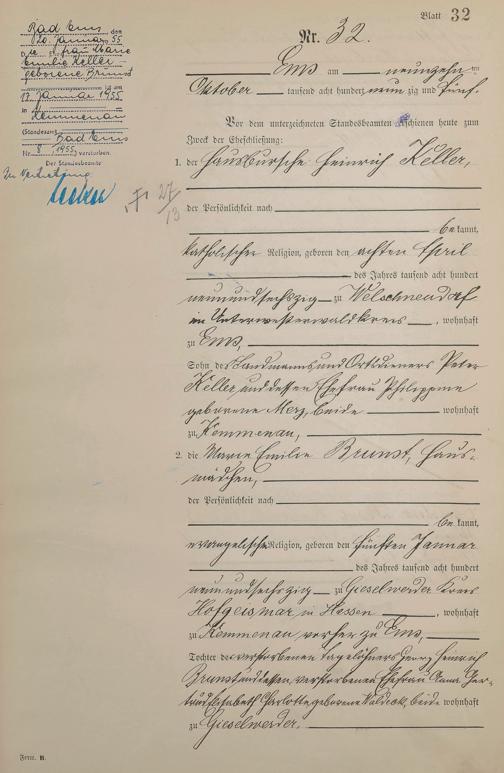 Blatt 32
Nr. 32.
Bad Ems den
20. Januar 55
Die Frau Marie
Emilie Keller
geborene Brunst
ist am
17. Januar 1955
in
Kemmenau
(Standesamt Bad Ems
Nr. 8/1955) verstorben.
Der Standesbeamte
In Vertretung
27
13
Ems am neunzehnten
Oktober tausend acht hundert neunzig und fünf.
Vor dem unterzeichneten Standesbeamten erschienen heute zum
Zweck der Eheschließung:
1. der Hausbursche Heinrich Keller,
der Persönlichkeit nach
bekannt,
katholischer Religion, geboren den achten April
des Jahres tausend acht hundert
neunundsechszig zu Welschneudorf
im Unterwesterwaldkreis, wohnhaft
zu Ems,
Sohn des Landmanns und Ortsdieners Peter
Keller, und dessen Ehefrau Philippine
geborene Merz, beide wohnhaft
zu Kemmenau,
2. die Marie Emilie Brunst, Haus-
mädchen,
der Persönlichkeit nach
bekannt,
evangelischer Religion, geboren den fünften Januar
des Jahres tausend acht hundert
neunundsechszig zu Gieselwerder Kreis
Hofgeismar in Hessen, wohnhaft
zu Kemmenau vorher zu Ems,
Tochter des verstorbenen Tagelöhners Georg Heinrich
Brunst und dessen verstorbenen Ehefrau Anna Ger-
trud Elisabeth Charlotte geborene Waldeck, beide wohnhaft
zu Gieselwerder.
Form. B.